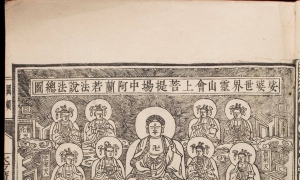 娑婆世界靈山會上菩提場中阿蘭若法說法總圖